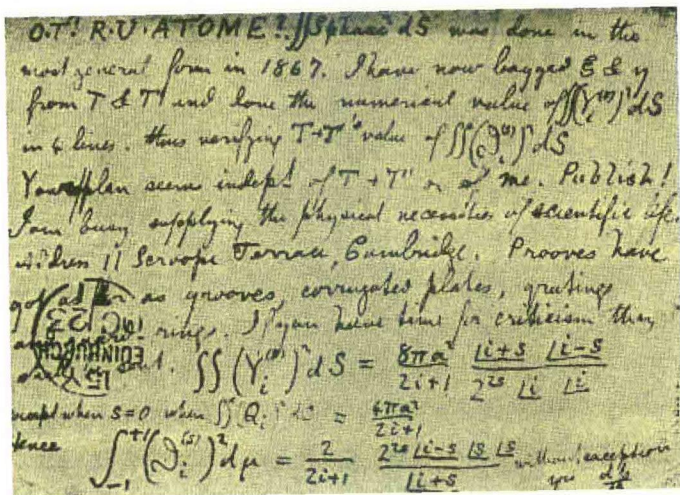 O.T! R.U. ATOME? ∬Spharc² dS was done in the
most general form in 1867. I have now bagged ξ & η
from T & T' and done the numerical value of ∬(Y_i^(s))² dS
in 4 lines. thus verifying T+T''s value of ∬(ϑ_i^(s))² dS
Your plan seems indept of T + T' or of me. Publish!
I am busy supplying the physical necessities of scientific life.
Address 11 Scroope Terrace, Cambridge. Prooves have
got as far as grooves, corrugated plates, gratings
rings. If you have time for criticism they
out. ∬(Y_i^(s))² dS = 8πa²/(2i+1) · |i+s |i-s / (2^2s |i |i)
EDINBURGH
except when s=0 when ∬ Q_i² dS = 4πa²/(2i+1)
hence ∫_-1^+1 (ϑ_i^(s))² dμ = 2/(2i+1) · 2^2s |i-s |s |s / |i+s without exception
yrs dp/dt